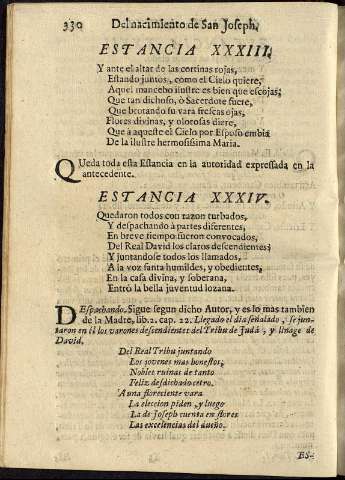 330 Del nacimiento de San Joseph.
ESTANCIA XXXIII.
Y ante el altar de las cortinas rojas,
Estando juntos, como el Cielo quiere,
Aquel mancebo ilustre es bien que escojas;
Que tan dichoso, ò Sacerdote fuere,
Que brotando su vara frescas ojas,
Flores divinas, y olorosas diere,
Que à aqueste el Cielo por Esposo embia
De la ilustre hermosissima Maria.
QUeda toda esta Estancia en la autoridad expressada en la
antecedente.
ESTANCIA XXXIV.
Quedaron todos con razon turbados,
Y despachando à partes diferentes,
En breve tiempo fueron convocados,
Del Real David los claros descendientes;
Y juntandose todos los llamados,
A la voz santa humildes, y obedientes,
En la casa divina, y soberana,
Entrò la bella juventud lozana.
DEspachando. Sigue segun dicho Autor, y es lo mas tambien
de la Madre, lib. 2. cap. 22. Llegado el dia señalado, se jun-
taron en èl los varones descendientes del Tribu de Judà, y linage de
David.
Del Real Tribu juntando
Los jovenes mas honestos,
Nobles ruinas de tanto
Feliz desdichado cetro.
A una floreciente vara
La eleccion piden, y luego
La de Joseph cuenta en flores
Las excelencias del dueño.
ES-